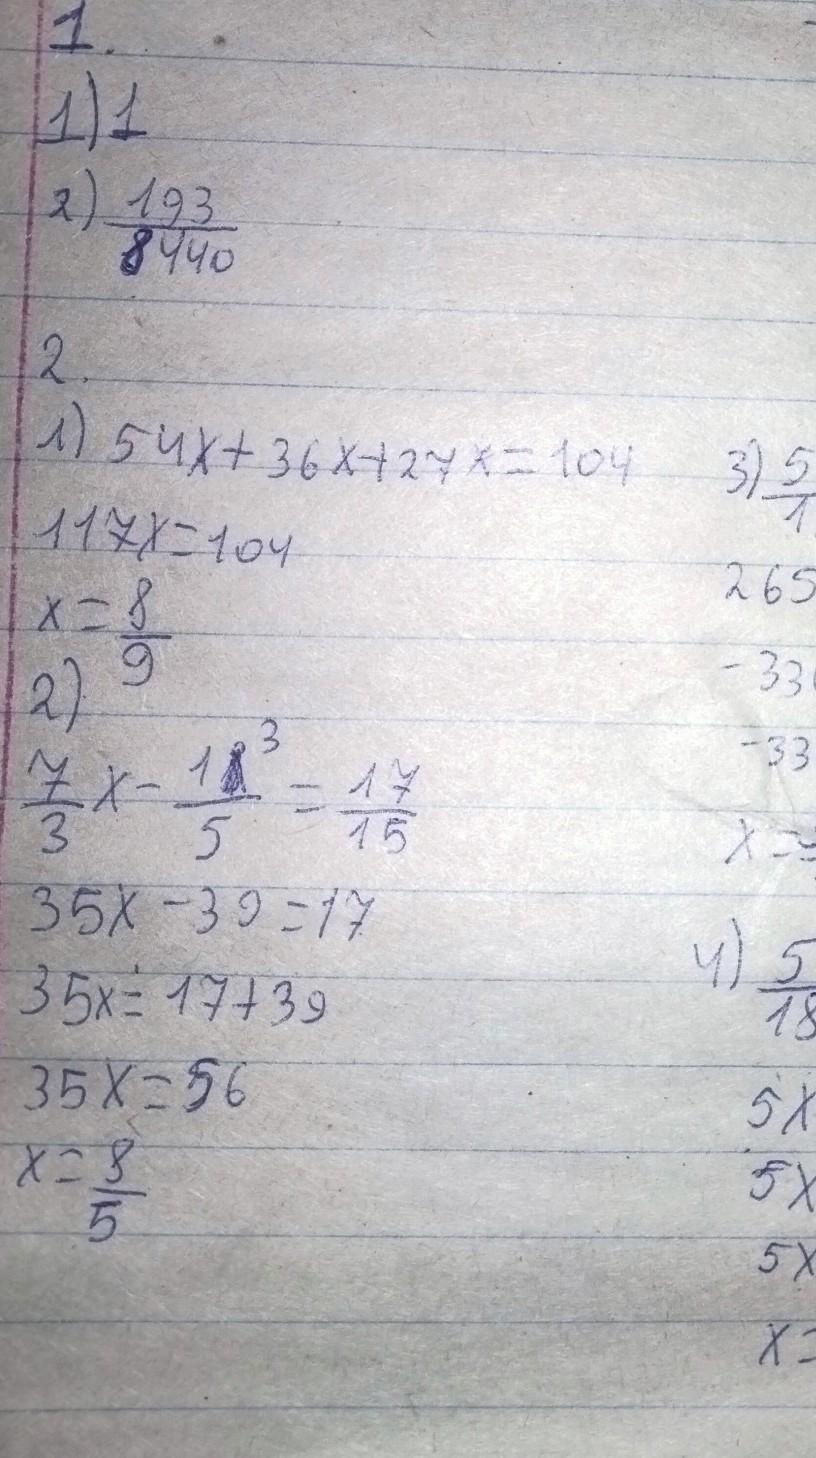 1.
1) 1
2) 193/8440
2.
1) 54x+36x+27x=104
117x=104
x=8/9
2)
7/3 x - 13/5 = 17/15
35x-39=17
35x=17+39
35x=56
x=8/5
3) 5/1
265
-33
-33
x=
4) 5/18
5x
5x
5x
x=